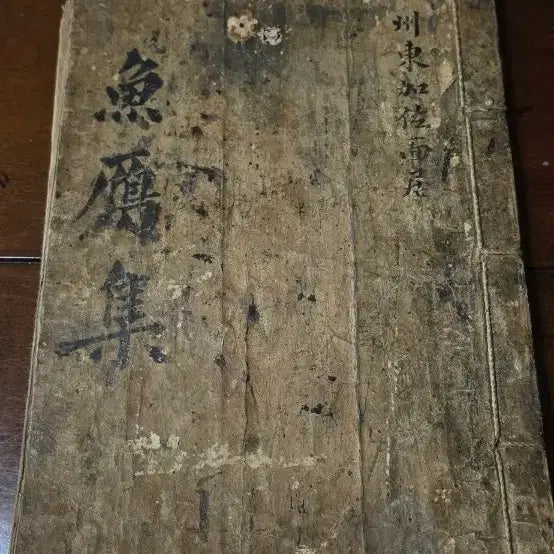 州東加佐面居
魚鴈集